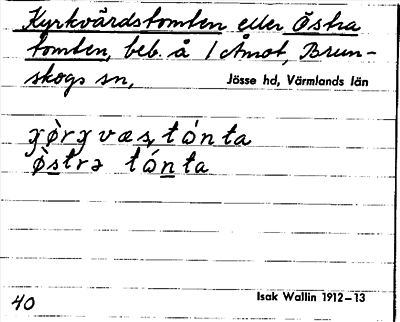 Kyrkvärdstomten eller Östra
tomten, beb. å 1 Åmot, Brun-
skogs sn,
Jösse hd, Värmlands län
östrə tónta
Isak Wallin 1912–13
40